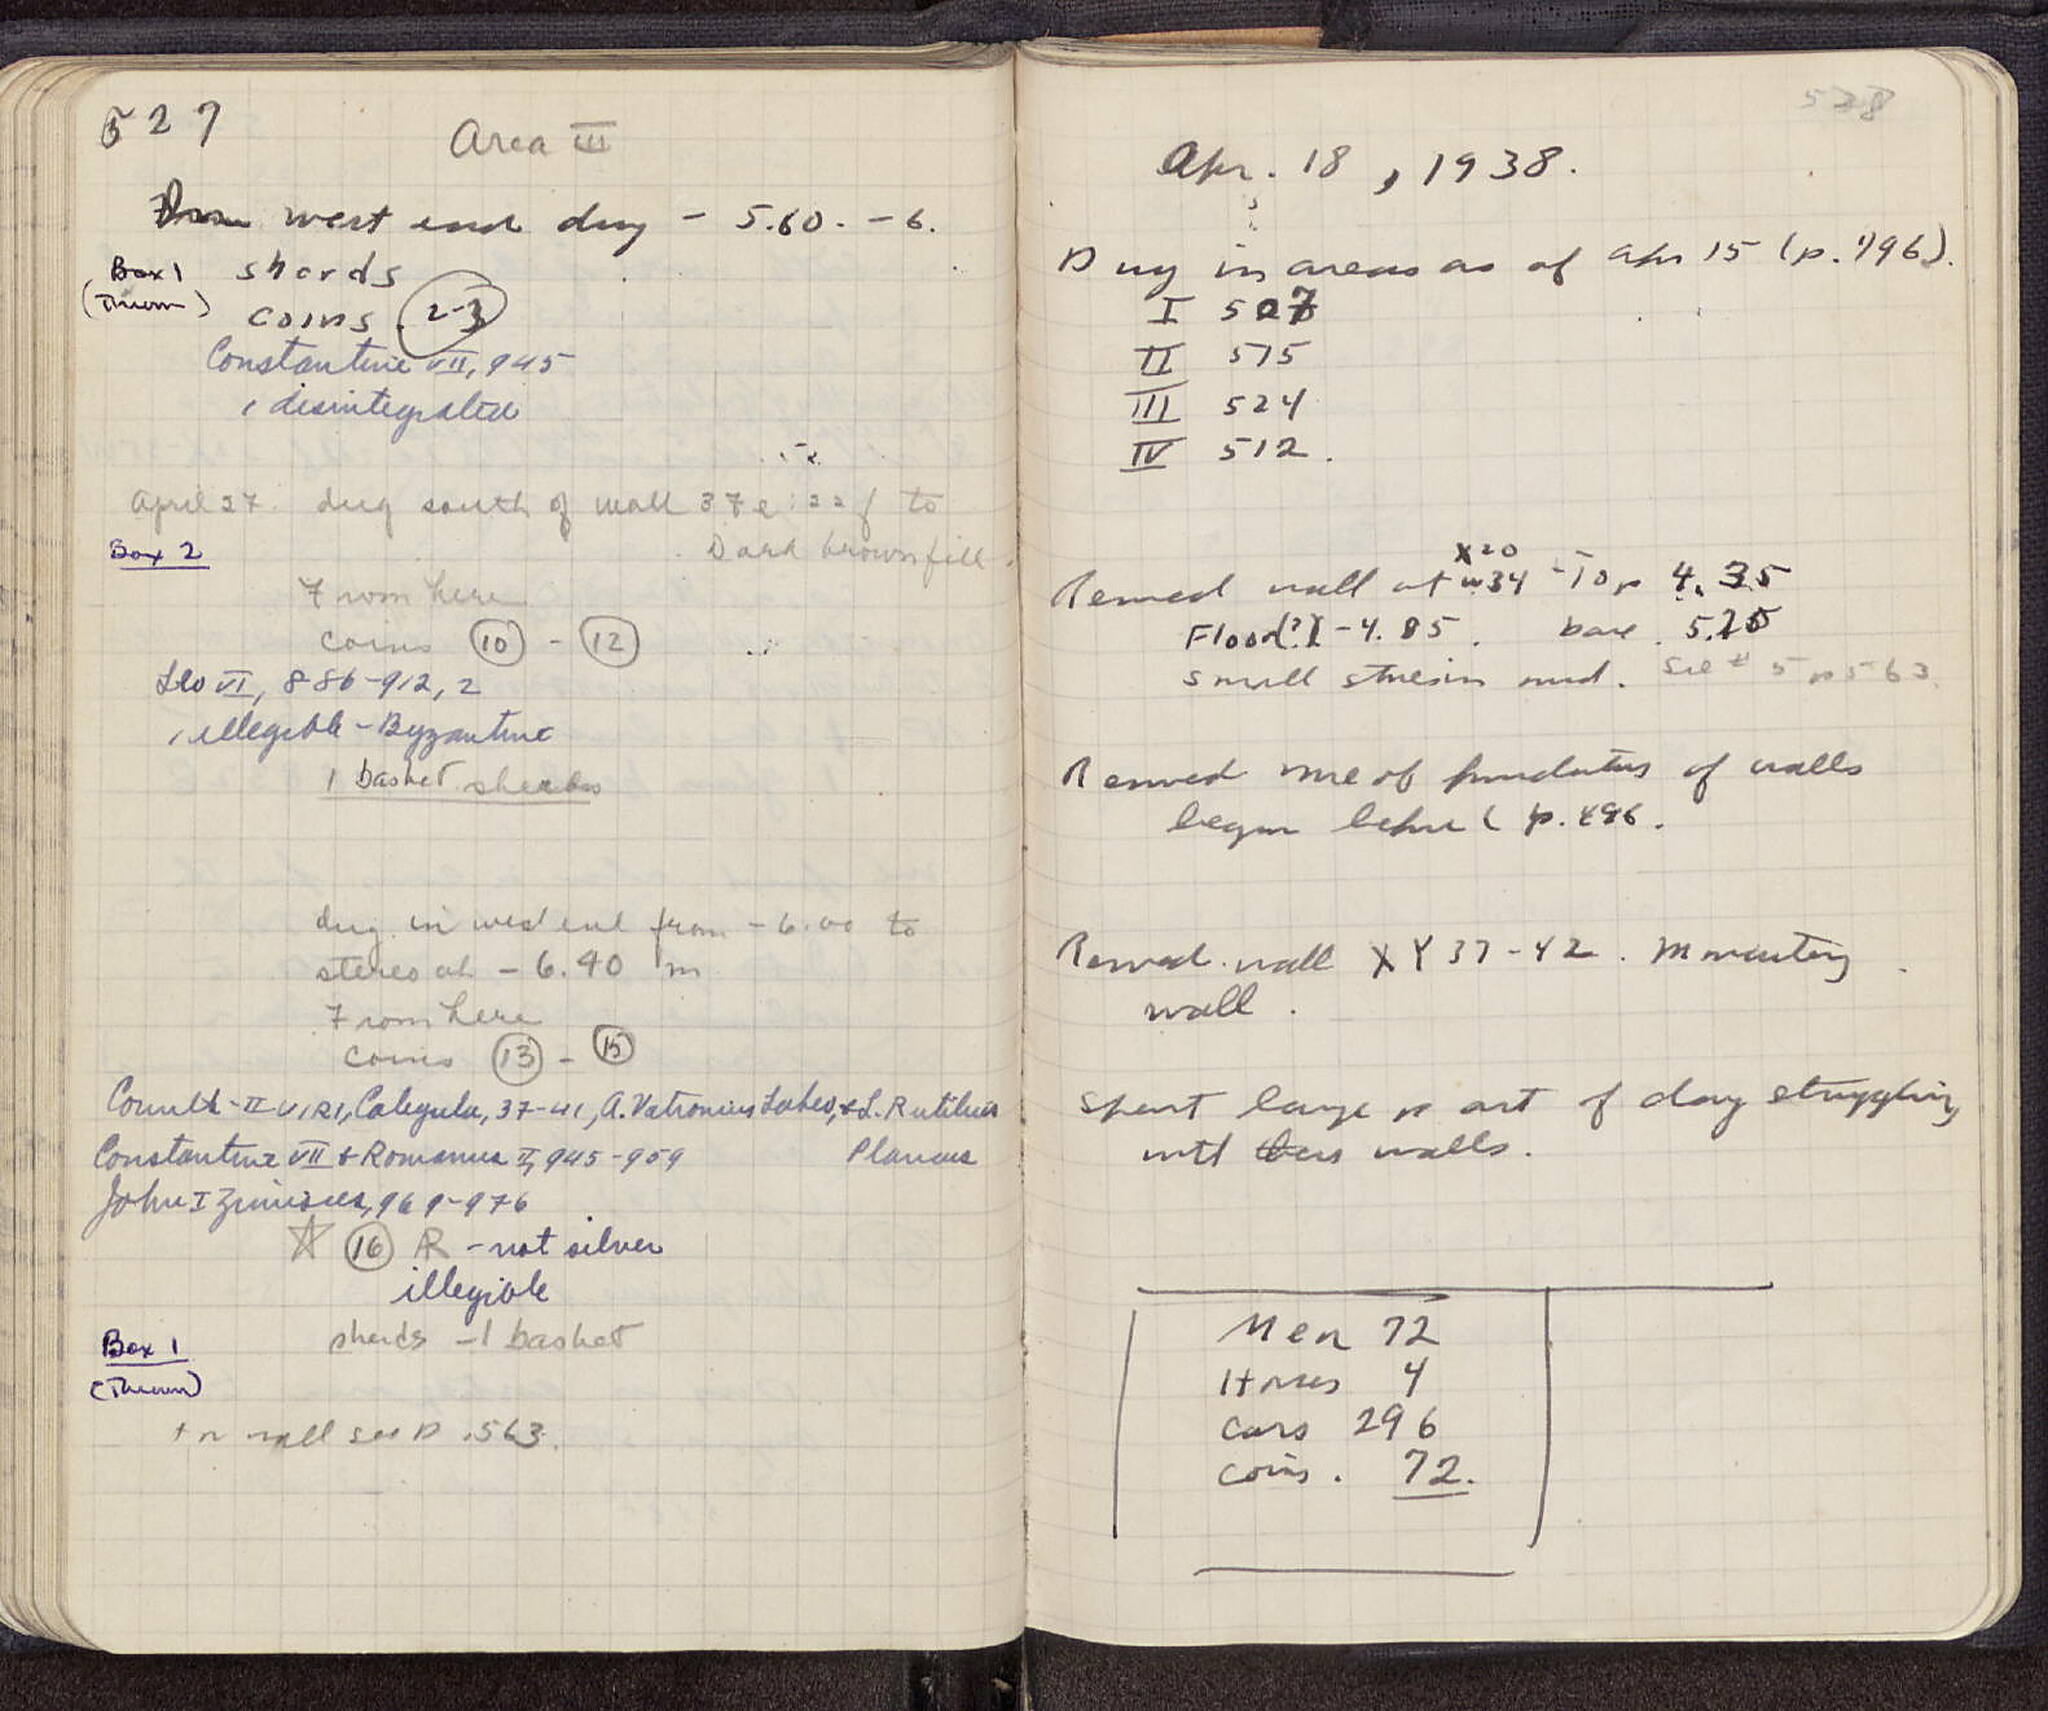 527
Area III
west end dug - 5.60. - 6.
Box 1 sherds
(Thrown) coins 2-3
Constantine VII, 945
1 disintegrated
April 27. dug south of wall 37e:22f to
Dark brown fill.
Box 2
From here
coins 10 - 12
Leo VI, 886-912, 2
1 illegible - Byzantine
1 basket sherds
dug in west end from - 6.00 to
stereo at - 6.40 m
From here
coins 13 - 15
Corinth - II VIRI, Caligula, 37-41, A. Vatronius Labeo, & L. Rutilius
Plancus
Constantine VII & Romanus II, 945-959
John I Zimisces, 969-976
16 AR - not silver
illegible
sherds - 1 basket
Box 1
(Thrown)
wall see p. 563.
528
Apr. 18, 1938.
Dug in areas as of Apr 15 (p. 496).
I 507
II 515
III 524
IV 512.
Removed wall at w34 - Top 4.35
X20
Floor(?) - 4.85. base 5.20
small stones in mud. See # 5 p 563.
Removed more of foundations of walls
begun before (p. 496.
Removed wall XY 37-42. Monastery
wall.
Spent large part of day struggling
with walls.
Men 72
Horses 4
Cars 296
Coins. 72.